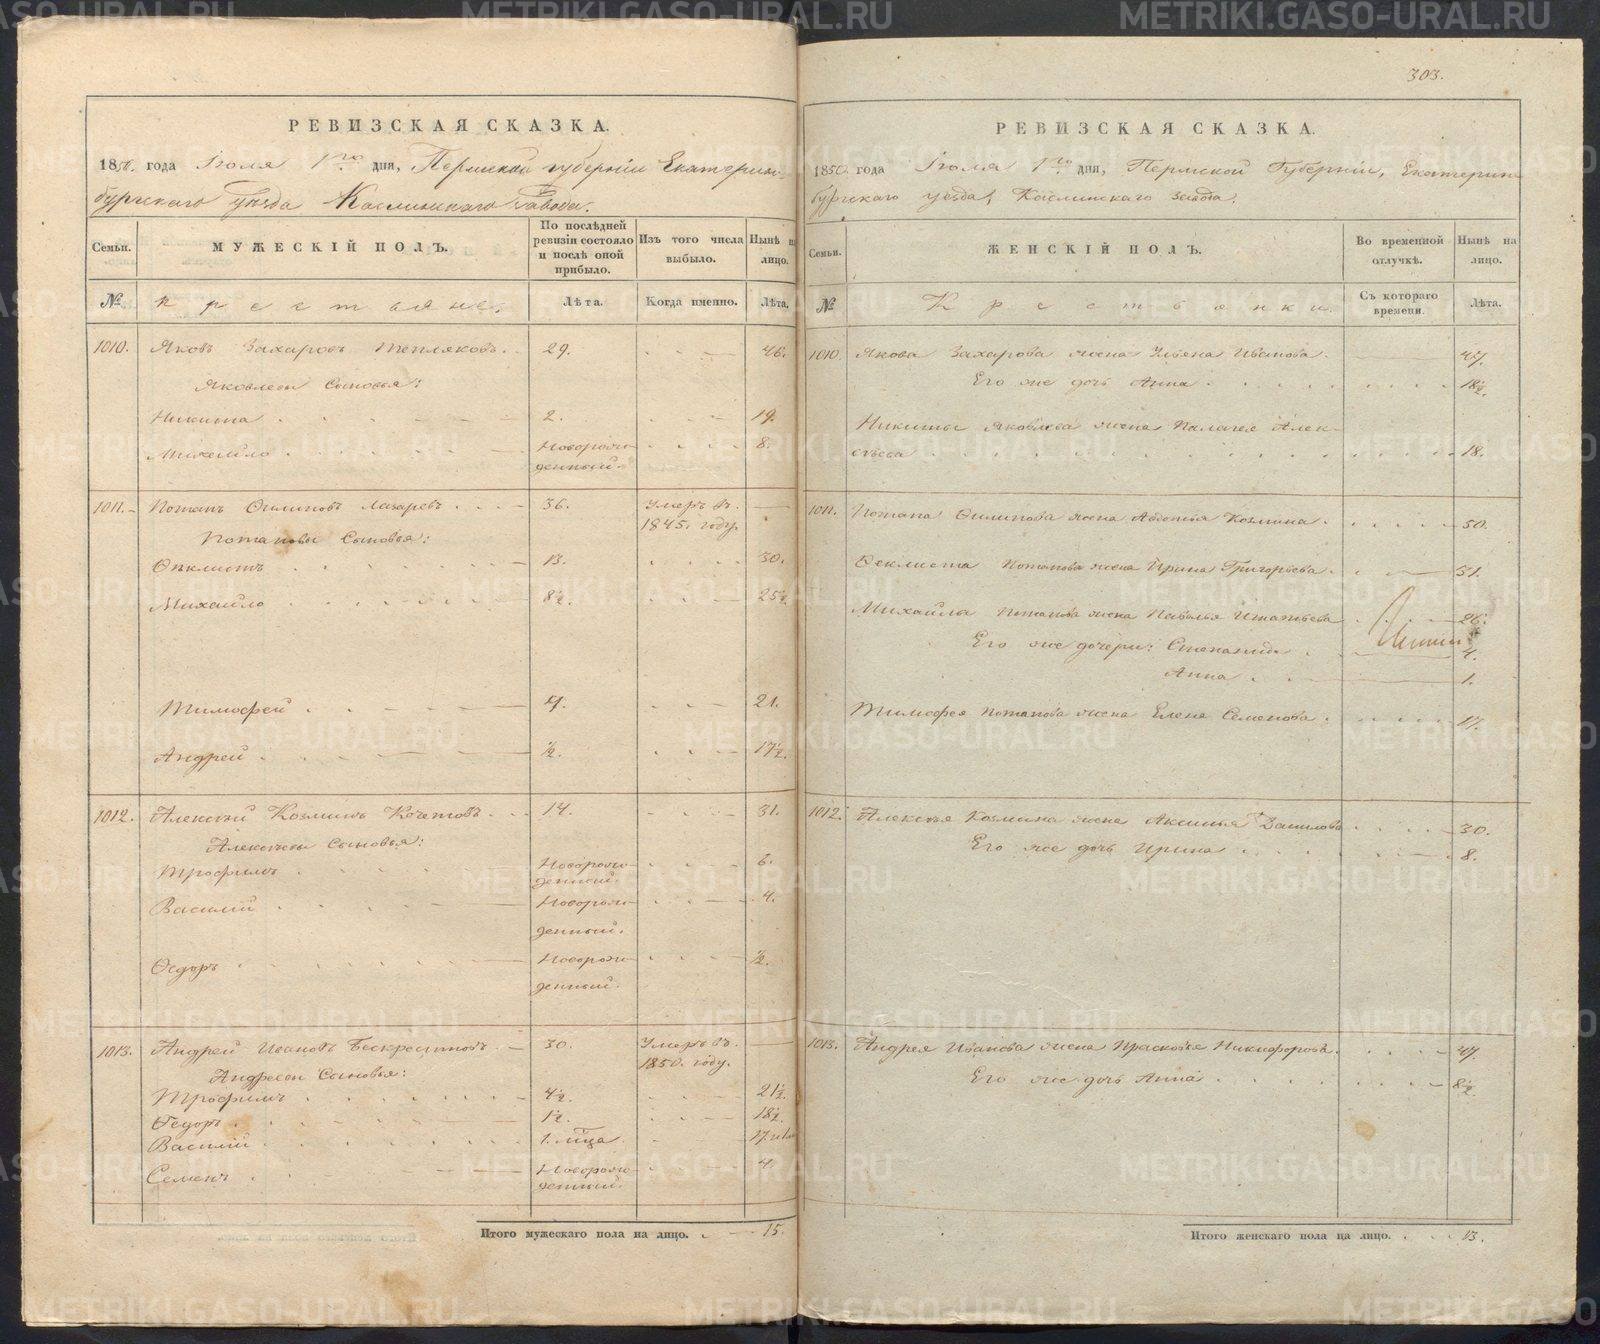 303.
РЕВИЗСКАЯ СКАЗКА.
1850. года Іюля 1го дня, Пермской губерніи Екатерин-
бургскаго уѣзда Каслинскаго Завода.
Семьи. МУЖЕСКІЙ ПОЛЪ. По послѣдней ревизіи состояло и послѣ оной прибыло. Изъ того числа выбыло. Нынѣ на лицо.
№ Крестьяне. Лѣта. Когда именно. Лѣта.
1010. Яковъ Захаровъ Тепляковъ. 29. 46.
Яковлевы Сыновья:
Никита 2. 19.
Михайло Новорож- 8.
денный.
1011. Потапъ Филиповъ Лазаревъ 36. Умеръ въ
1845. году.
Потаповы Сыновья:
Ѳеклистъ 13. 30.
Михайло 8½. 25½.
Тимофей 4. 21.
Андрей ½. 17½.
1012. Алексѣй Козминъ Кочетовъ 14. 31.
Алексѣевы Сыновья:
Трофимъ Новорож- 6.
денный.
Василій Новорож- 4.
денный.
Ѳедоръ Новорож- ½.
денный.
1013. Андрей Ивановъ 30. Умеръ въ
1850. году.
Андреевы Сыновья:
Трофимъ 4½. 21½.
Ѳедоръ 1½. 18½.
Василій 1. м̃ца 17.
Семенъ Новорож- 4.
денный.
Итого мужескаго пола на лицо. 15.
РЕВИЗСКАЯ СКАЗКА.
1850. года Іюля 1го дня, Пермской Губерніи, Екатерин-
бургскаго уѣзда, Каслинскаго завода.
Семьи. ЖЕНСКІЙ ПОЛЪ. Во временной отлучкѣ. Нынѣ на лицо.
№ Крестьянки. Съ котораго времени. Лѣта.
1010. Якова Захарова жена Ульяна Иванова. 47.
Его же дочь Анна 18½.
Никиты Яковлева жена Палагея Алек-
сѣева 18.
1011. Потапа Филипова жена Авдотья Козмина. 50.
Ѳеклиста Потапова жена Ирина Григорьева. 31.
Михайлы Потапова жена Наталья Игнатьева 26.
Его же дочери: Степанида 4.
Анна 1.
Тимофея Потапова жена Елена Семенова. 17.
1012. Алексѣя Козмина жена Аксинья Данилова 30.
Его же дочь Ирина 8.
1013. Андрея Иванова жена Прасковья Никифорова. 47.
Его же дочь Анна 8½.
Итого женскаго пола на лицо. 13.
METRIKI.GASO-URAL.RU